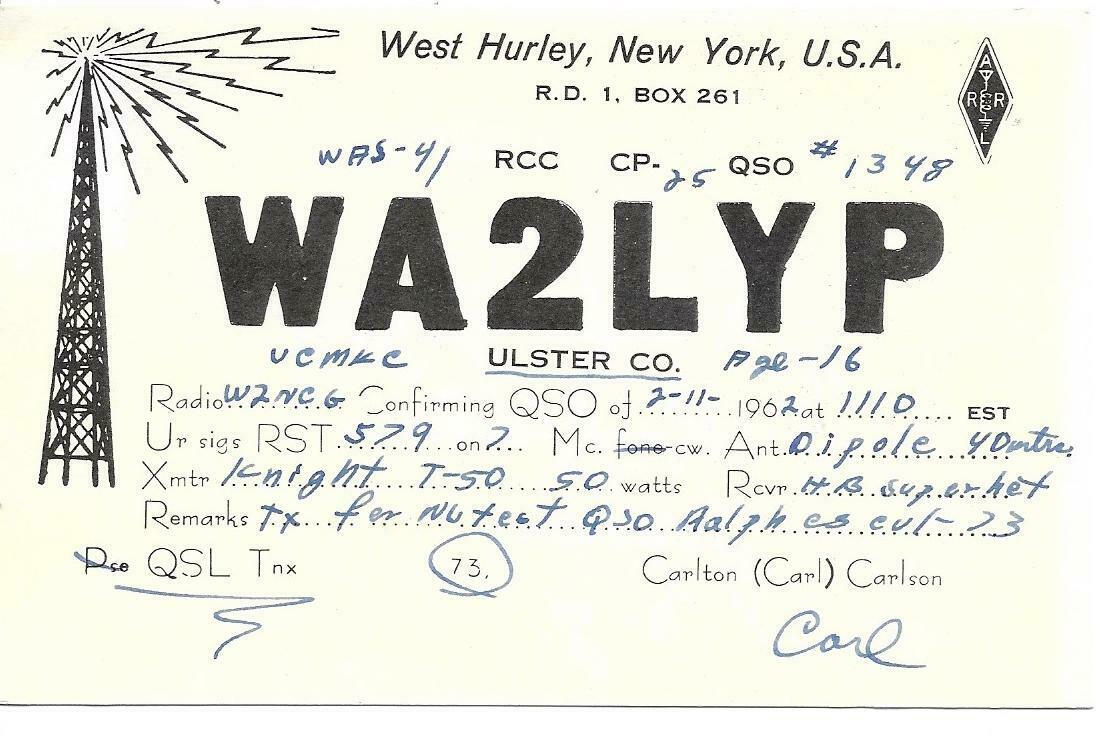 West Hurley, New York, U.S.A.
R.D. 1, BOX 261
A
R R
L
WAS-41 RCC CP-25 QSO #1348
WA2LYP
UCMKC ULSTER CO. Age-16
Radio W2NCG Confirming QSO of 2-11- 1962 at 1110 EST
Ur sigs RST 579 on 7 Mc. fone-cw. Ant. Dipole 40mtrs.
Xmtr Knight T-50 50 watts Rcvr. H.B. superhet
Remarks Tx for NY test QSO Ralph es cul-73
Pse QSL Tnx 73, Carlton (Carl) Carlson
Carl